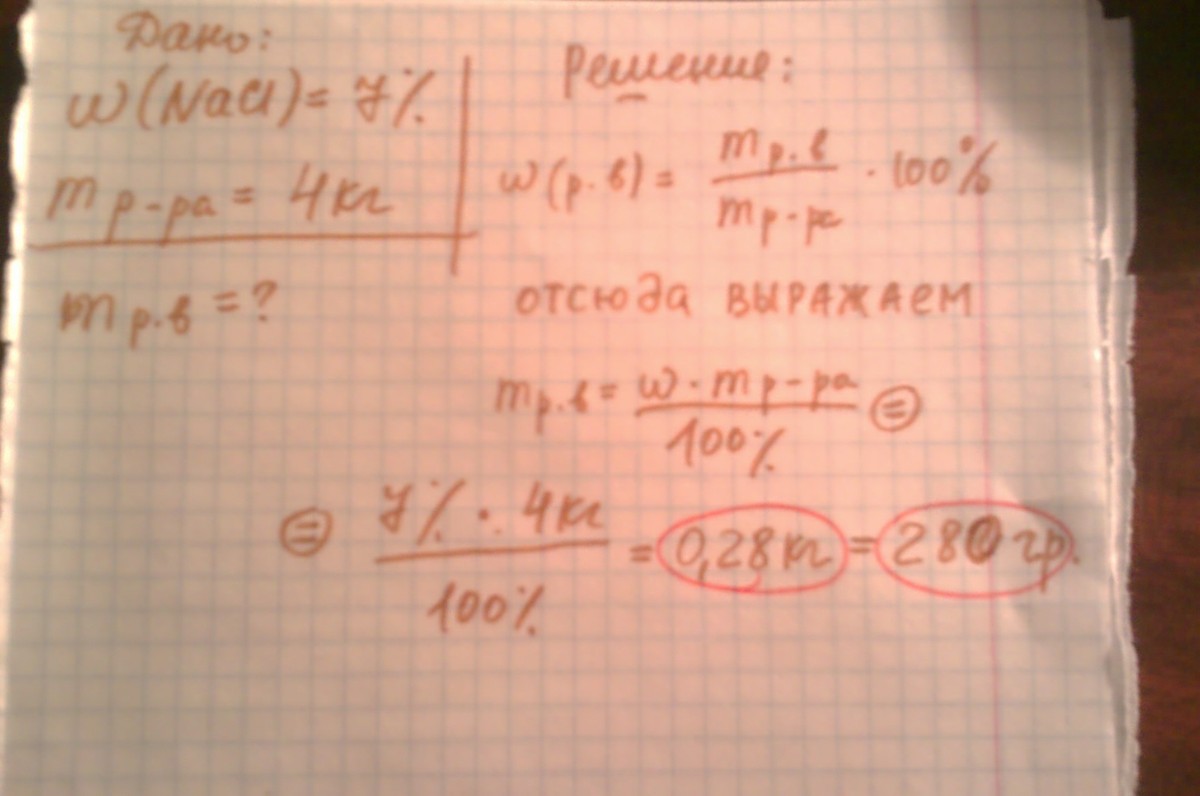 Дано:
w(NaCl) = 7%
m р-ра = 4кг
m р.в = ?
Решение:
w(р.в) = m р.в / m р-ра · 100%
отсюда выражаем
m р.в = w · m р-ра / 100% =
= 7% · 4кг / 100% = 0,28кг = 280 гр.